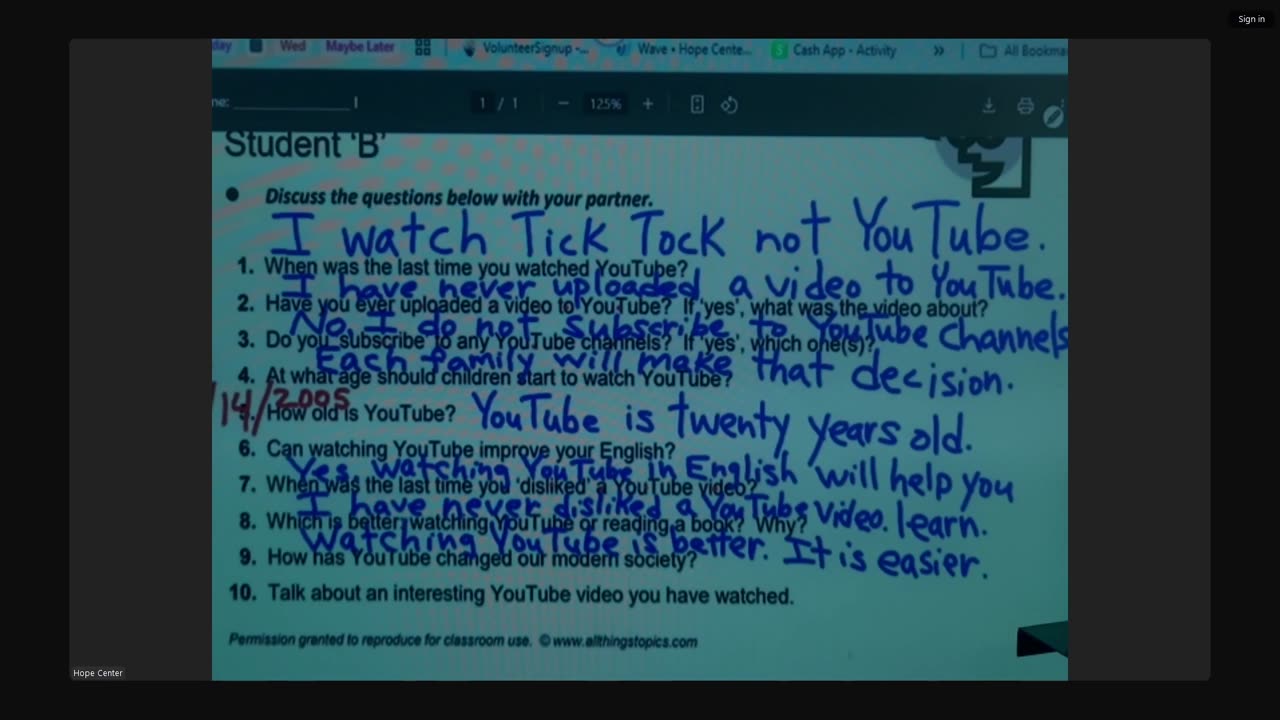 Sign in
Wed
Maybe Later
VolunteerSignup -...
Wave • Hope Cente...
Cash App • Activity
»
All Bookma
ne: ____________
1 / 1
125%
Student 'B'
Discuss the questions below with your partner.
I watch Tick Tock not YouTube.
1. When was the last time you watched YouTube?
I have never uploaded a video to YouTube.
2. Have you ever uploaded a video to YouTube? If 'yes', what was the video about?
No I do not subscribe to YouTube channels
3. Do you subscribe to any YouTube channels? If 'yes', which one(s)?
Each family will make that decision.
4. At what age should children start to watch YouTube?
/14/2005
5. How old is YouTube? YouTube is twenty years old.
6. Can watching YouTube improve your English?
Yes, watching YouTube in English will help you
7. When was the last time you 'disliked' a YouTube video?
I have never disliked a YouTube video. learn.
8. Which is better, watching YouTube or reading a book? Why?
Watching YouTube is better. It is easier.
9. How has YouTube changed our modern society?
10. Talk about an interesting YouTube video you have watched.
Permission granted to reproduce for classroom use. © www.allthingstopics.com
Hope Center